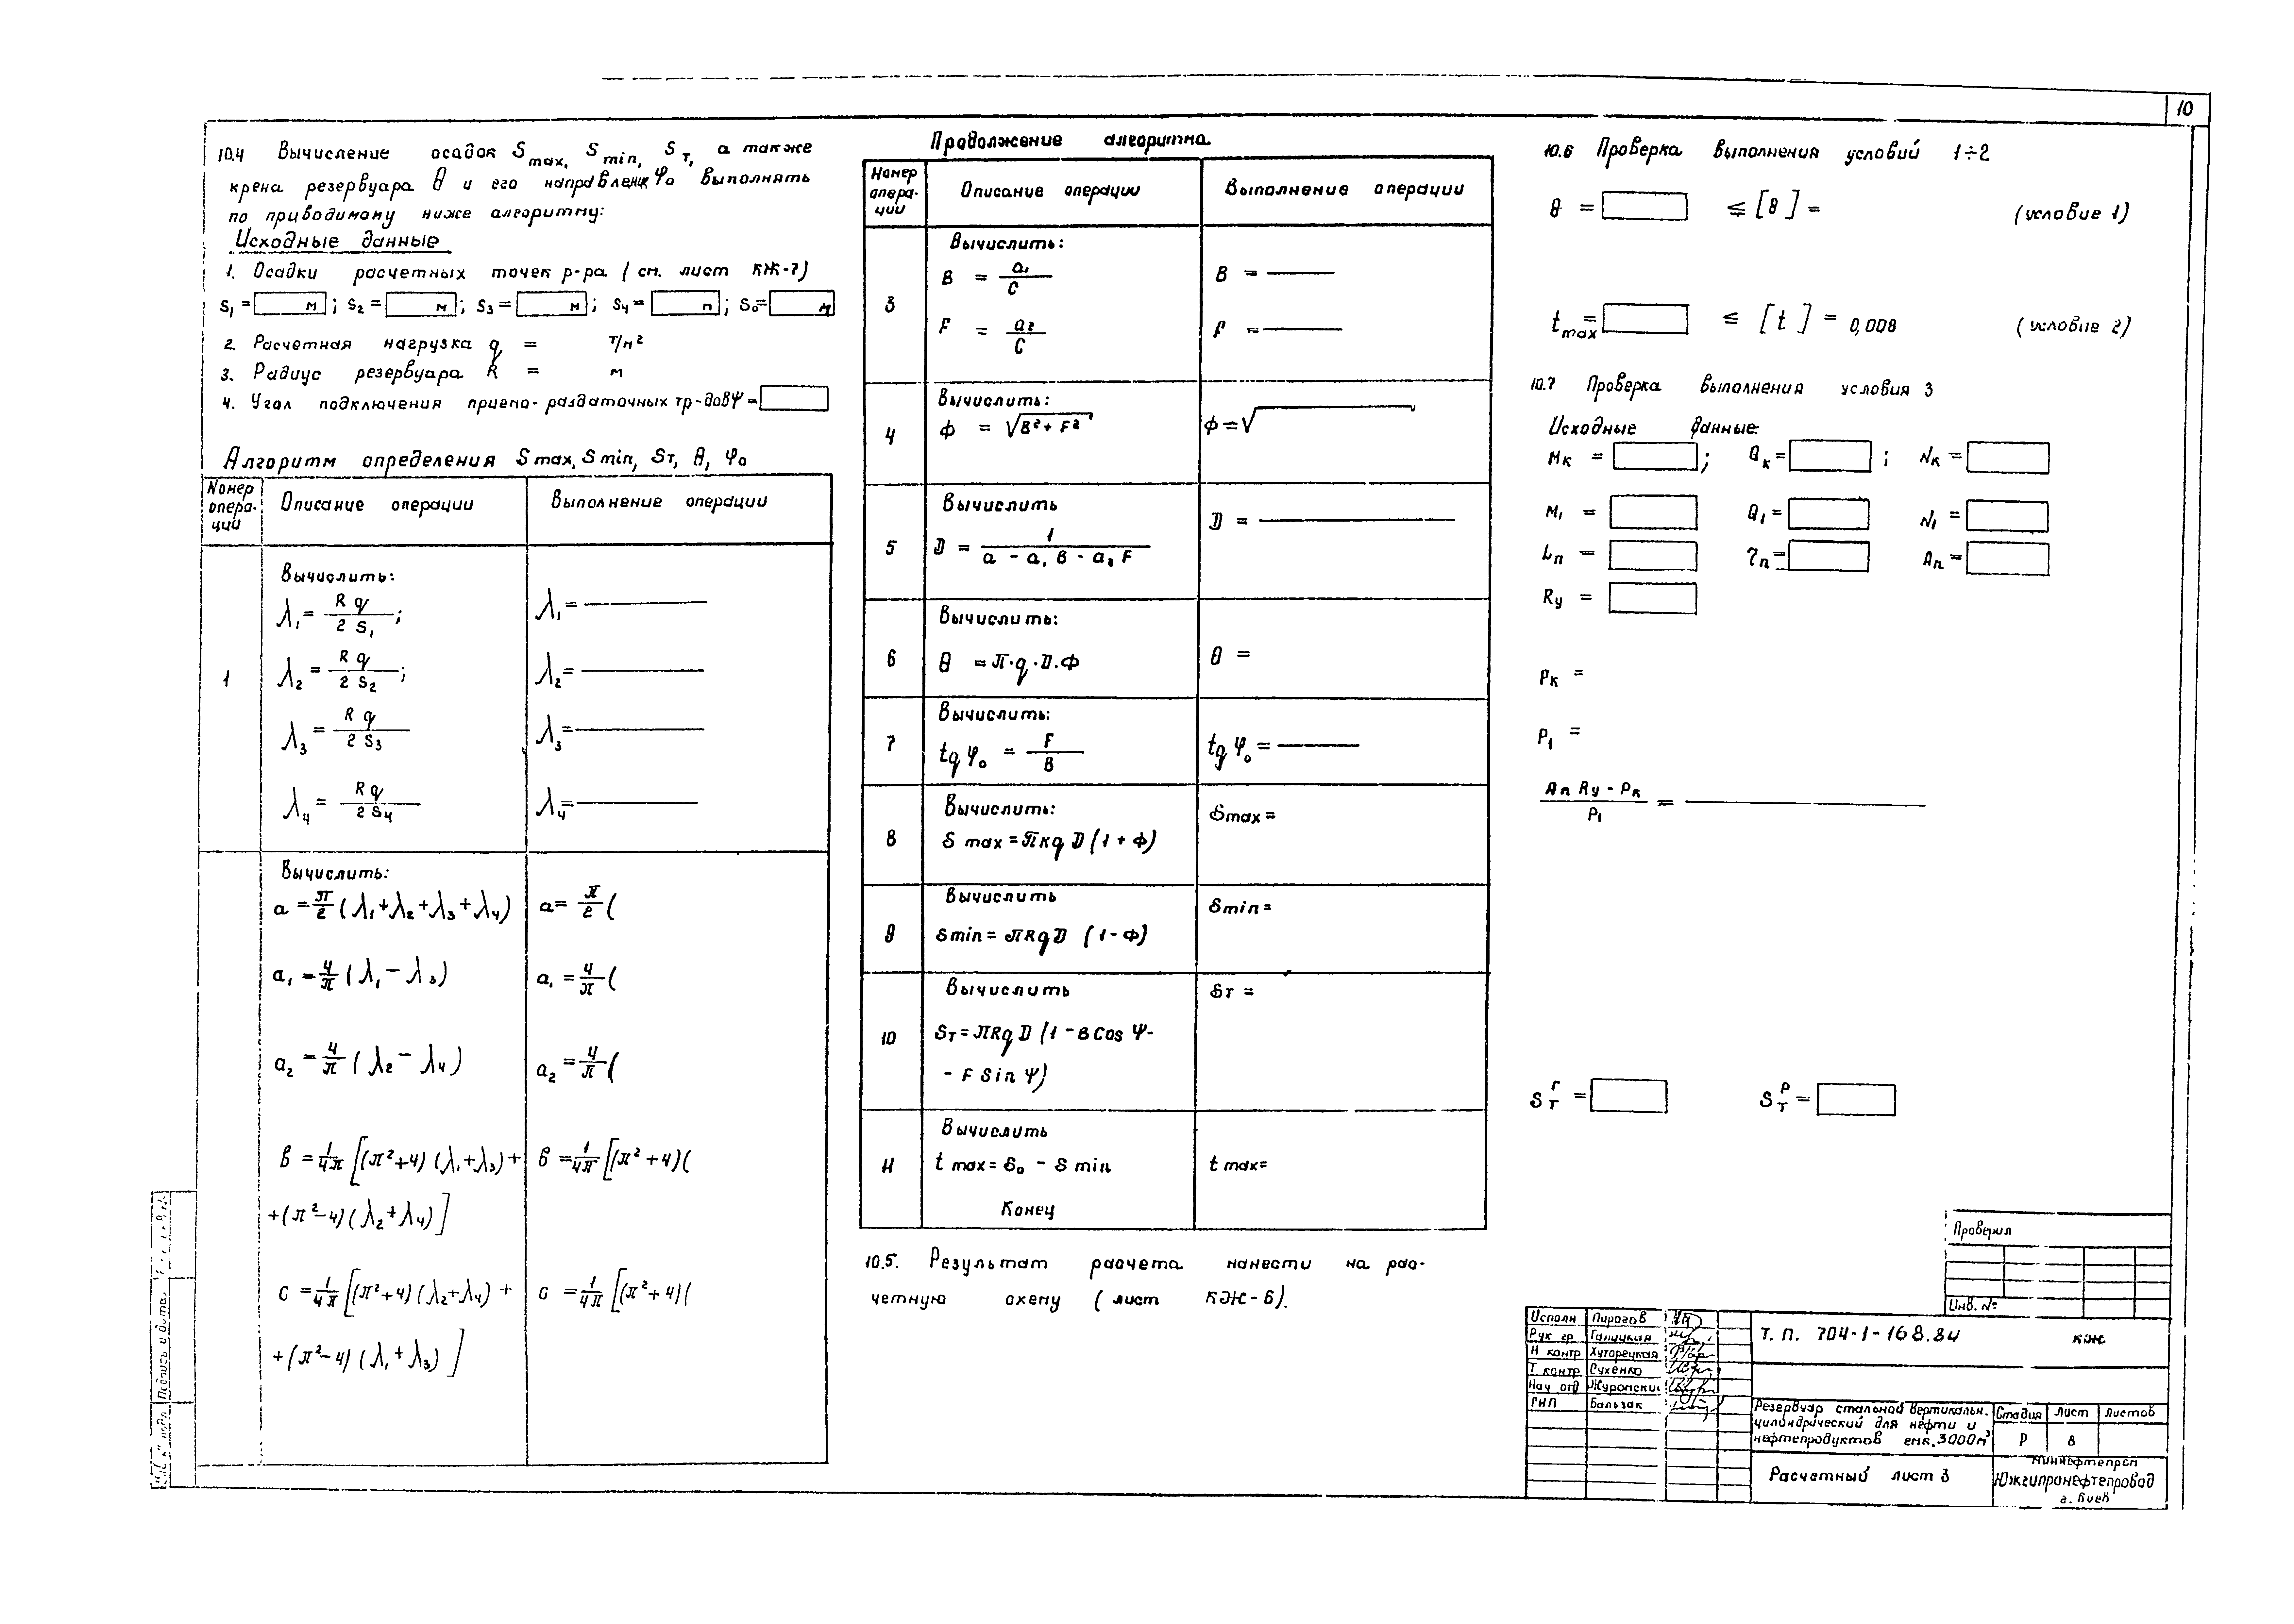 10
10.4 Вычисление осадок Smax, Smin, Sт, а также
крена резервуара θ и его направление φ₀ выполнять
по приводимому ниже алгоритму:
Исходные данные
1. Осадки расчетных точек р-ра (см. лист КЖ-7)
S₁ = м ; S₂ = м ; S₃ = м ; S₄ = м ; S₀ = м
2. Расчетная нагрузка q = т/м²
3. Радиус резервуара R = м
4. Угол подключения приемо-раздаточных тр-дов ψ =
Алгоритм определения Smax, Smin, Sт, θ, φ₀
Номер опера-ции Описание операции Выполнение операции
1
Вычислить:
λ₁ = R q / 2 S₁ ; λ₁ =
λ₂ = R q / 2 S₂ ; λ₂ =
λ₃ = R q / 2 S₃ λ₃ =
λ₄ = R q / 2 S₄ λ₄ =
Вычислить:
a = π/2 (λ₁+λ₂+λ₃+λ₄) a = π/2 (
a₁ = 4/π (λ₁ - λ₃) a₁ = 4/π (
a₂ = 4/π (λ₂ - λ₄) a₂ = 4/π (
в = 1/4π [(π²+4) (λ₁+λ₃) + в = 1/4π [(π²+4)(
+(π²-4)(λ₂+λ₄)]
c = 1/4π [(π²+4)(λ₂+λ₄) + c = 1/4π [(π²+4)(
+(π²-4)(λ₁+λ₃)]
Продолжение алгоритма
Номер опера-ции Описание операции Выполнение операции
3
Вычислить:
B = a₁ / C B =
F = a₂ / C F =
4
Вычислить:
Ф = √B²+F² Ф = √
5
Вычислить
D = 1 / a - a₁ B - a₂ F D =
6
Вычислить:
θ = π·q·D·Ф θ =
7
Вычислить:
tg φ₀ = F / B tg φ₀ =
8
Вычислить:
S max = πRq D (1 + Ф) Smax =
9
Вычислить
Smin = πRqD (1 - Ф) Smin =
10
Вычислить
Sт = πRq D (1 - B Cos ψ - Sт =
- F Sin ψ)
11
Вычислить
t max = S₀ - S min t max =
Конец
10.5. Результат расчета нанести на рас-
четную схему (лист КЖ-6).
10.6 Проверка выполнения условий 1÷2
θ = ≤ [θ] = (условие 1)
t max = ≤ [t] = 0,008 (условие 2)
10.7 Проверка выполнения условия 3
Исходные данные:
Mк = ; Qк = ; Nк =
M₁ = Q₁ = N₁ =
Lп = τп = Aп =
Ry =
Pк =
P₁ =
Aп Ry - Pк / P₁ =
Sтᴦ = Sтᵖ =
Проверил
Инв. №
Исполн Пирогов
Рук гр Галицкая
Н контр Хуторецкая
Т контр Сухенко
Нач отд
ГИП Бальзак
Т. П. 704-1-168.84 КЖ
Резервуар стальной вертикальн.
цилиндрический для нефти и
нефтепродуктов емк. 3000м³
Стадия Лист Листов
Р 8
Расчетный лист 3
Миннефтепром
Южгипронефтепровод
г. Киев
Подпись и дата